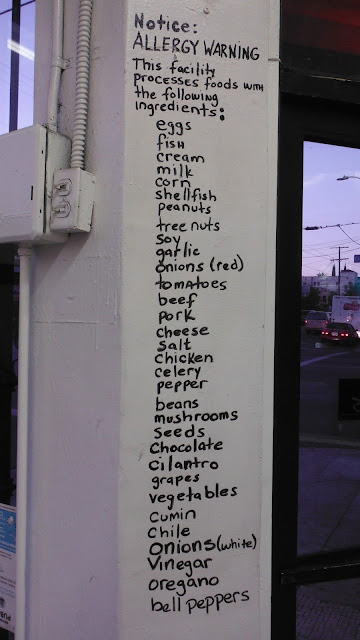 Notice:
ALLERGY WARNING
This facility
processes foods with
the following
ingredients:
eggs
fish
cream
milk
corn
shellfish
peanuts
tree nuts
soy
garlic
onions (red)
tomatoes
beef
pork
cheese
salt
chicken
celery
pepper
beans
mushrooms
seeds
chocolate
cilantro
grapes
vegetables
cumin
chile
onions (white)
vinegar
oregano
bell peppers